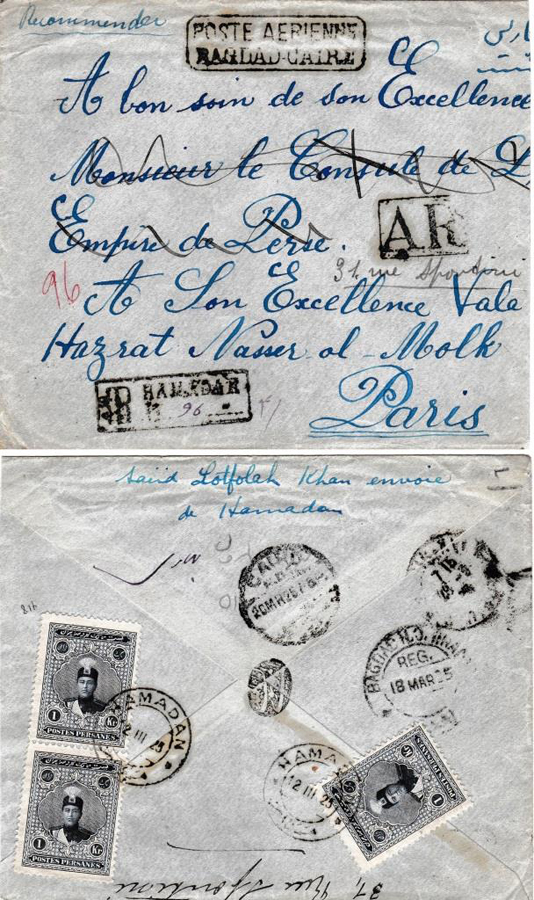 Recommender
POSTE AERIENNE
BAGDAD-CAIRE
A bon soin de son Excellence
Monsieur le Consule de
Empire de Perse.
A.R
31, rue Spontini
96
A Son Excellence Vala
Hazrat Nasser ol-Molk
HAMADAN
R
N 96
Paris
Saiid Lotfolah Khan envoie
de Hamadan
CAIRO
20 MR 25
BAGDAD
REG.
18 MAR 25
HAMADAN
12 III 25
1 Kr
POSTES PERSANES
1 Kr
POSTES PERSANES
HAMADAN
12 III 25
1
POSTES PERSANES
31, Rue Spontini